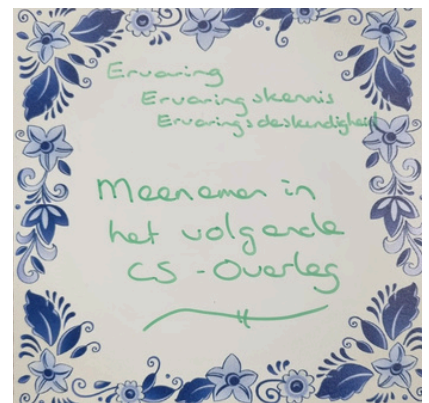 Ervaring
Ervaringskennis
Ervaringsdeskundigheid
Meenemen in
het volgende
CS-Overleg